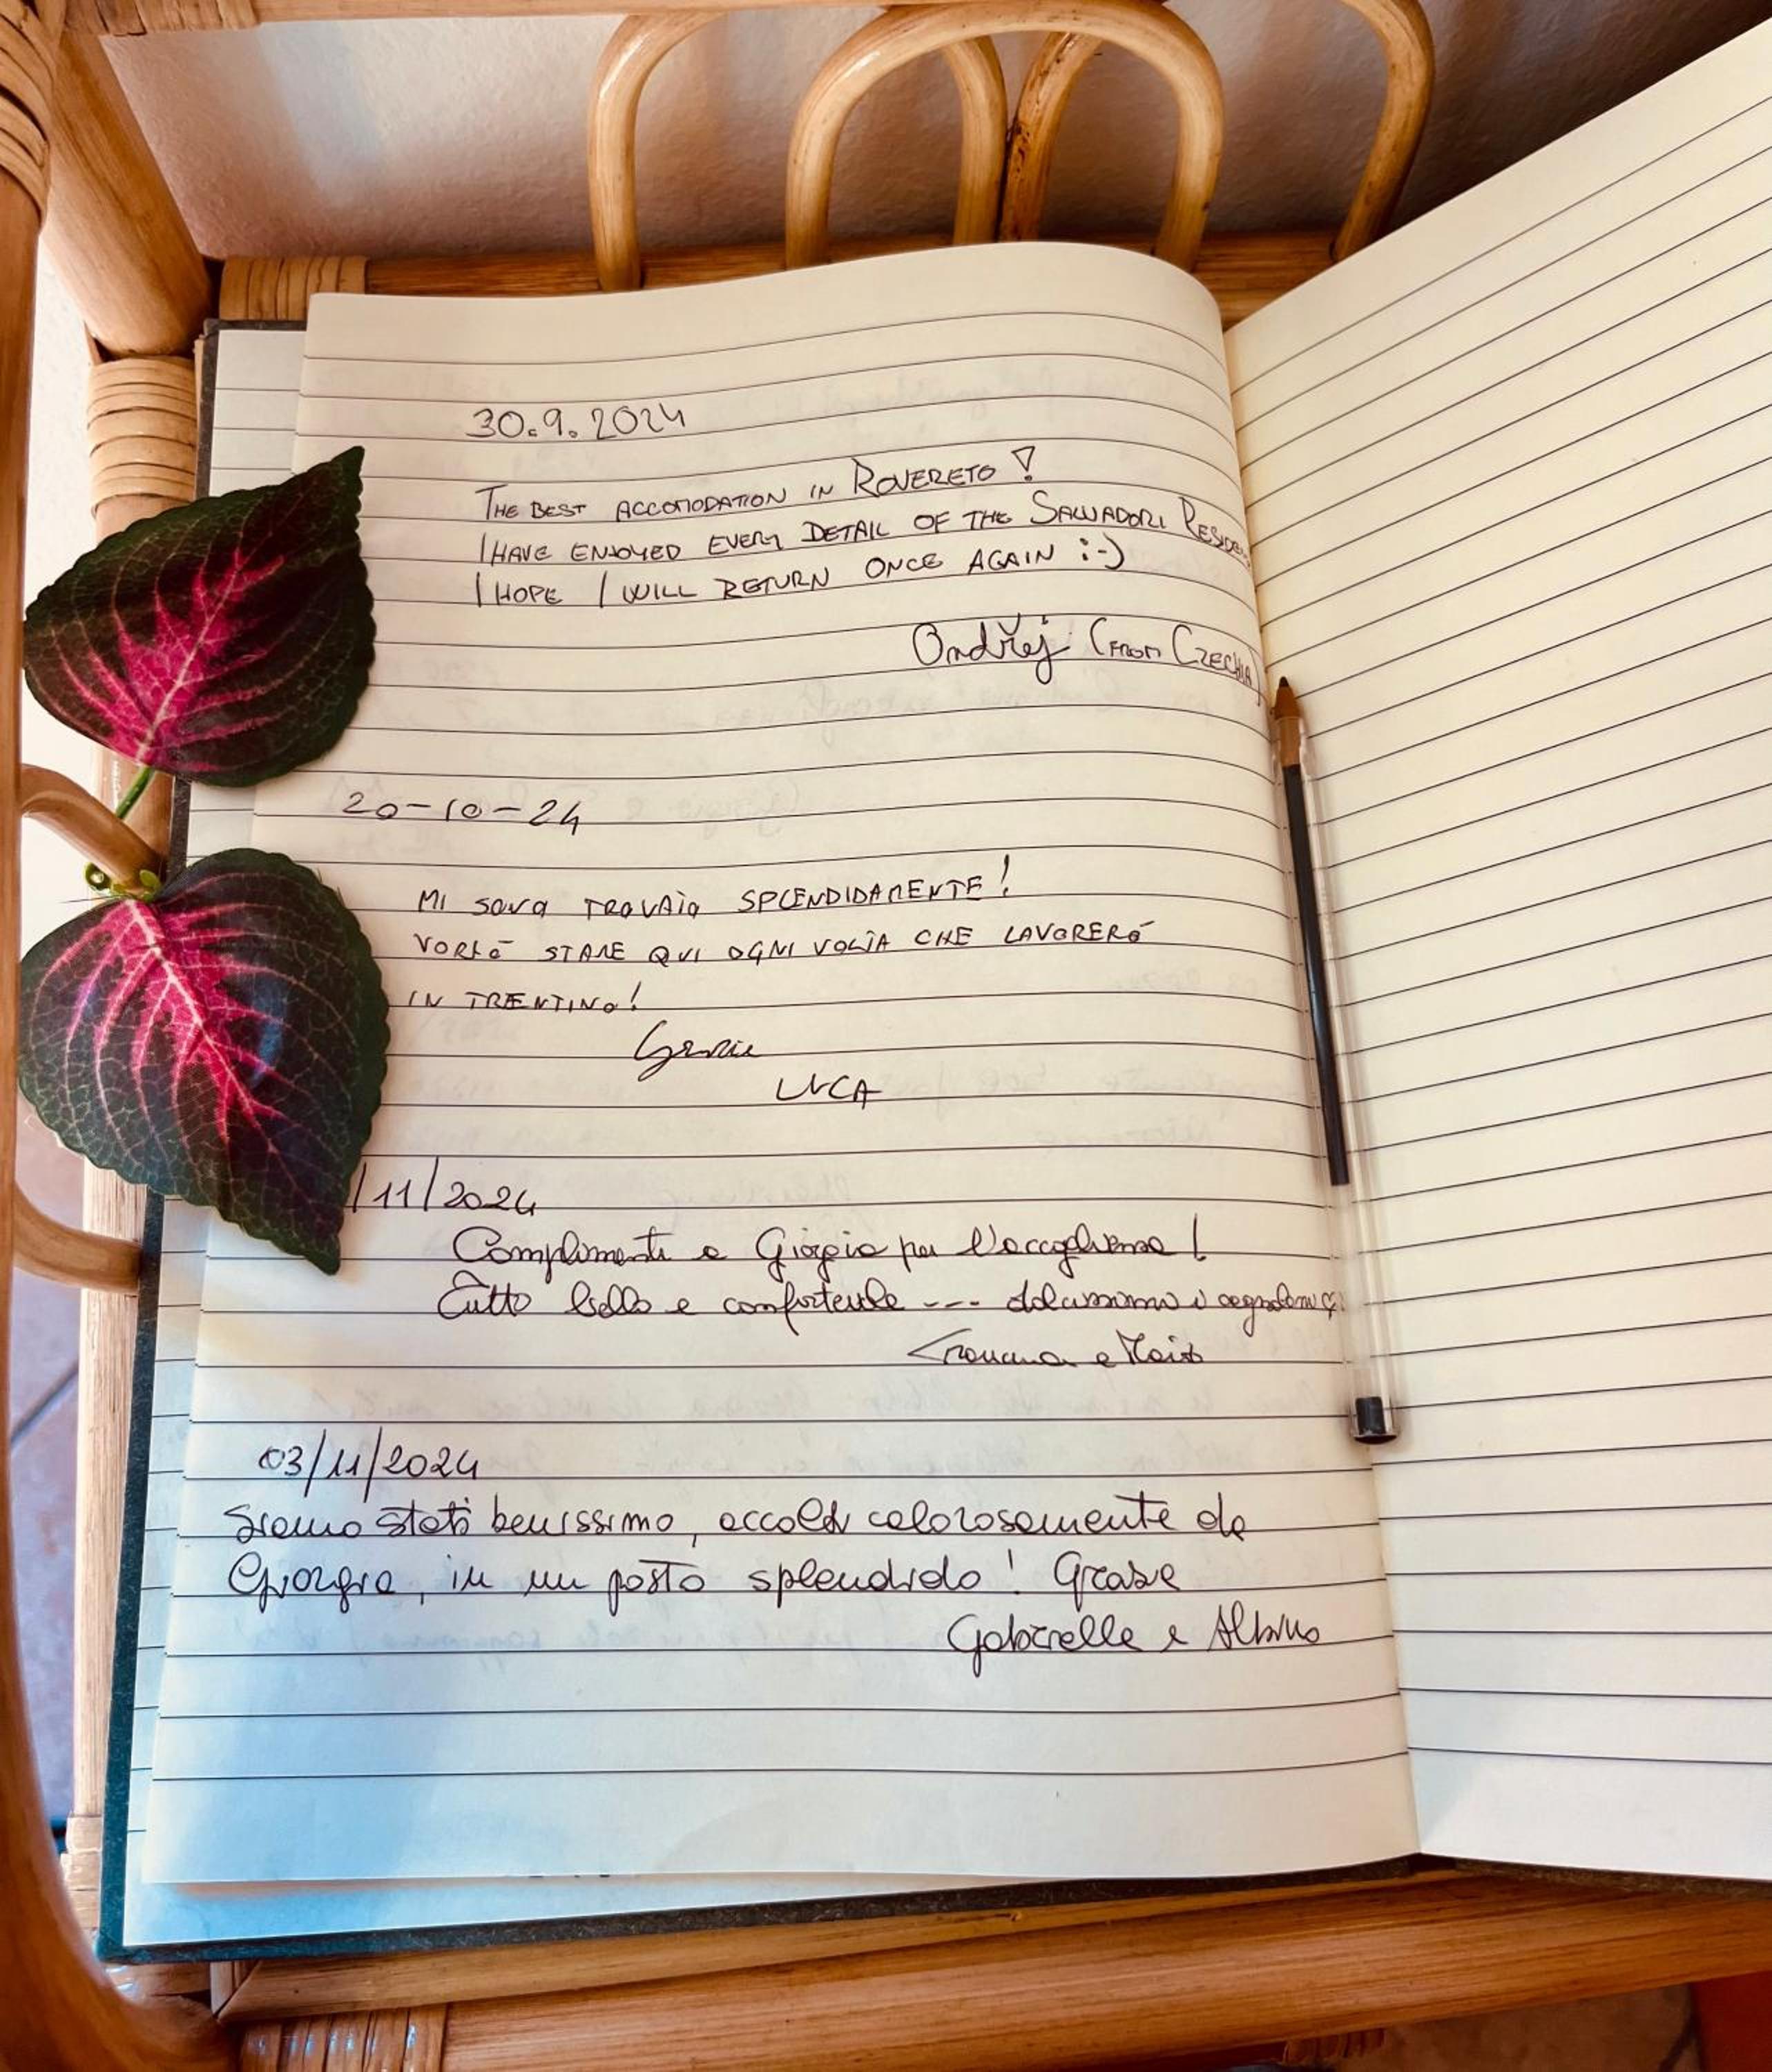 30.9.2024
THE BEST ACCOMODATION IN ROVERETO!
I HAVE ENJOYED EVERY DETAIL OF THE SALVADORI RESIDEN
I HOPE I WILL RETURN ONCE AGAIN :-)
Ondřej (FROM CZECHIA)
20-10-24
MI SONO TROVATO SPLENDIDAMENTE!
VORRÒ STARE QUI OGNI VOLTA CHE LAVORERÒ
IN TRENTINO!
Grazie
LUCA
/11/2024
Complimenti a Giorgio per l'accoglienza!
Tutto bello e confortevole ---
e
03/11/2024
Siamo stati benissimo, accolti calorosamente da
Giorgio, in un posto splendido! Grazie
Gabriella e Albino